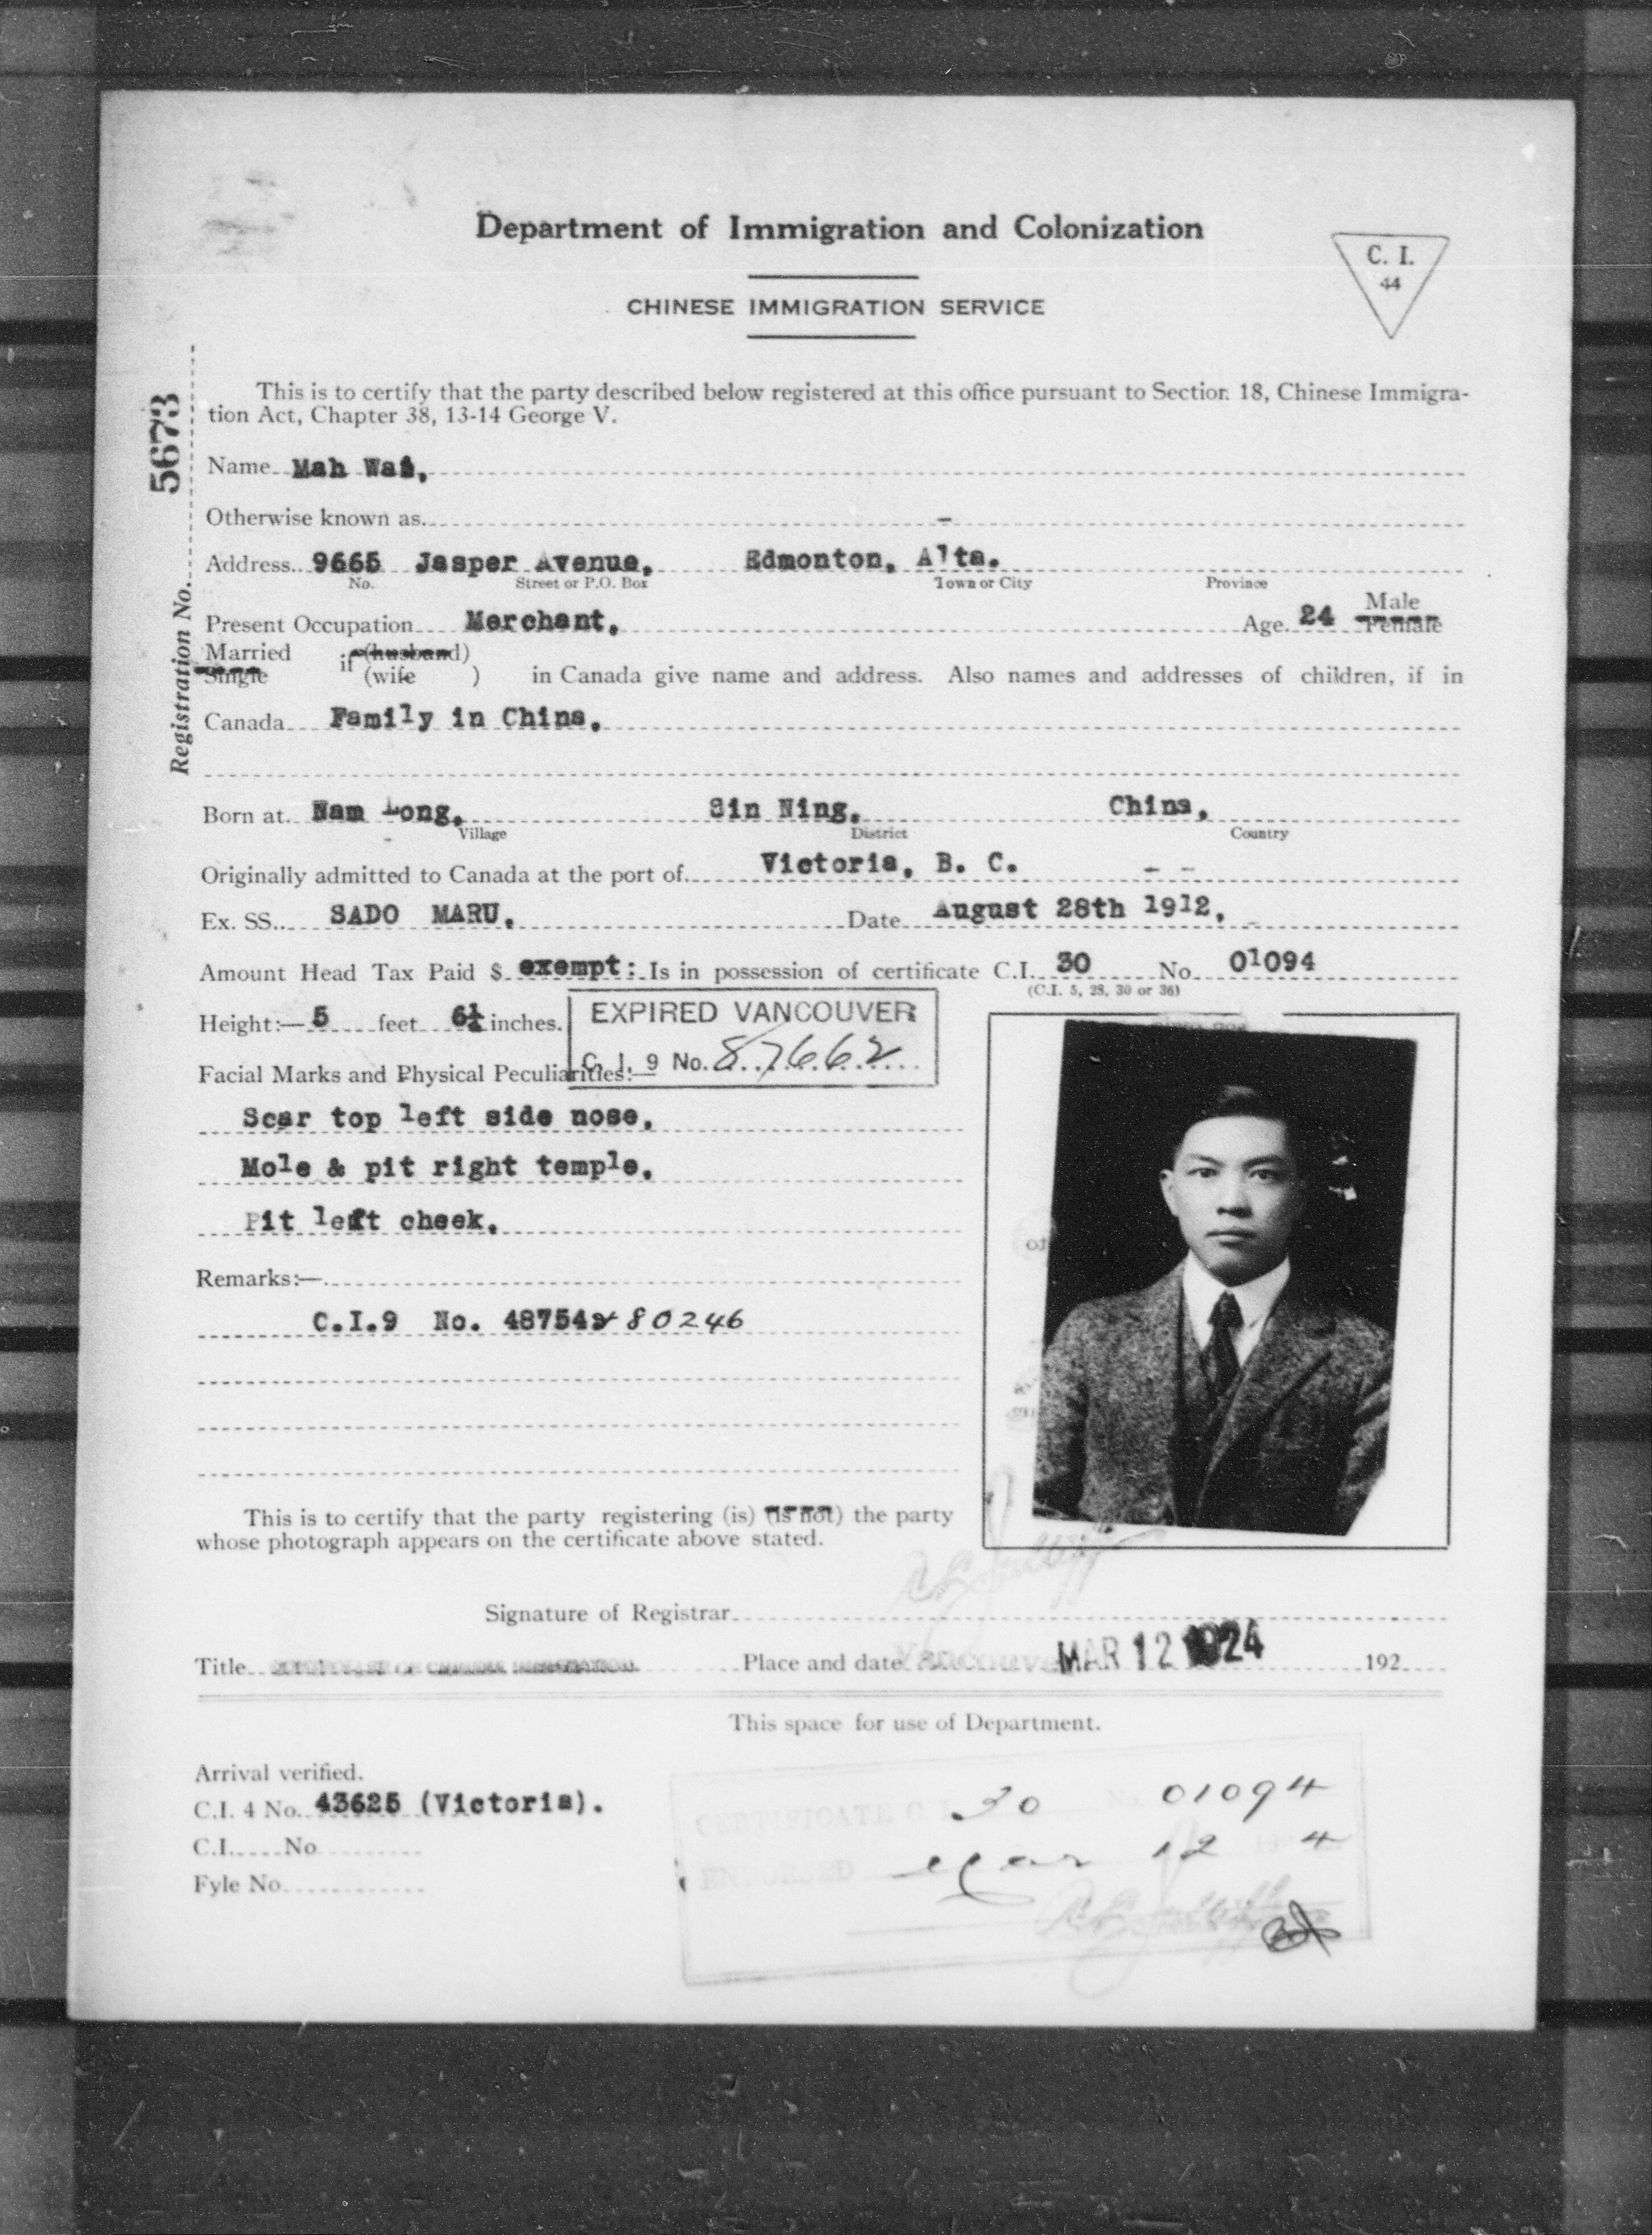 Department of Immigration and Colonization
C. I.
44
CHINESE IMMIGRATION SERVICE
Registration No. 5673
This is to certify that the party described below registered at this office pursuant to Section 18, Chinese Immigra-
tion Act, Chapter 38, 13-14 George V.
Name Mah Wai,
Otherwise known as -
Address 9665 Jasper Avenue, Edmonton, Alta.
No. Street or P.O. Box Town or City Province
Male
Present Occupation Merchant, Age 24 Female
Married if (husband)
Single (wife ) in Canada give name and address. Also names and addresses of children, if in
Canada Family in China,
Born at Nam Long, Sin Ning, China,
Village District Country
Originally admitted to Canada at the port of Victoria, B. C. - -
Ex. SS. SADO MARU, Date August 28th 1912,
Amount Head Tax Paid $ exempt: Is in possession of certificate C.I. 30 No. 01094
(C.I. 5, 28, 30 or 36)
Height:— 5 feet 6¼ inches.
EXPIRED VANCOUVER
C. I. 9 No. 87662
Facial Marks and Physical Peculiarities:—
Scar top left side nose,
Mole & pit right temple,
Pit left cheek,
Remarks:—
C.I.9 No. 48754 & 80246
This is to certify that the party registering (is) (is not) the party
whose photograph appears on the certificate above stated.
Signature of Registrar
Title Place and date Vancouver MAR 12 1924 192
This space for use of Department.
Arrival verified.
C.I. 4 No. 43625 (Victoria).
C.I. No
Fyle No.
CERTIFICATE C I 30 No. 01094
ENDORSED Mar 12 19 4